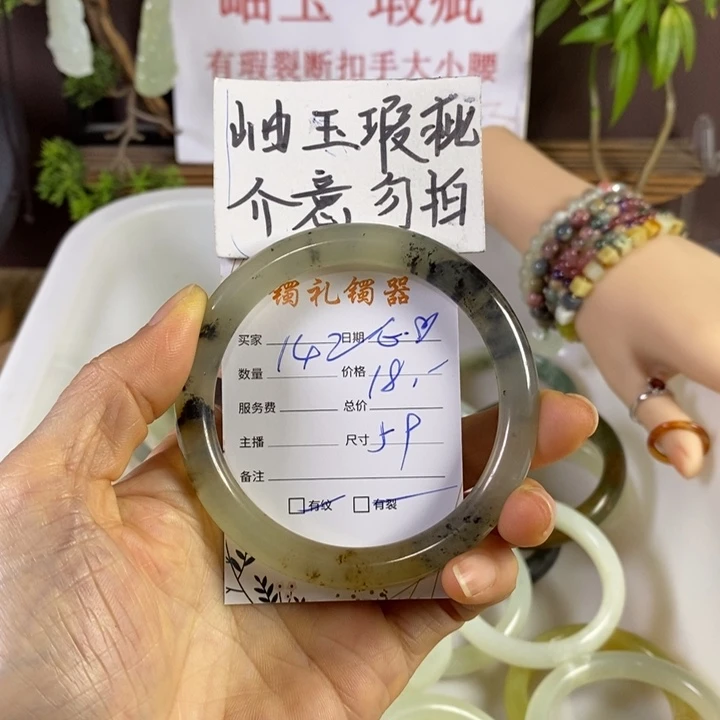 岫玉 瑕疵
有瑕裂断扣手大小腰
岫玉瑕疵
介意勿拍
镯礼镯器
买家 142 日期 6.8
数量 价格 18.-
服务费 总价
主播 尺寸 59
备注
有纹 有裂